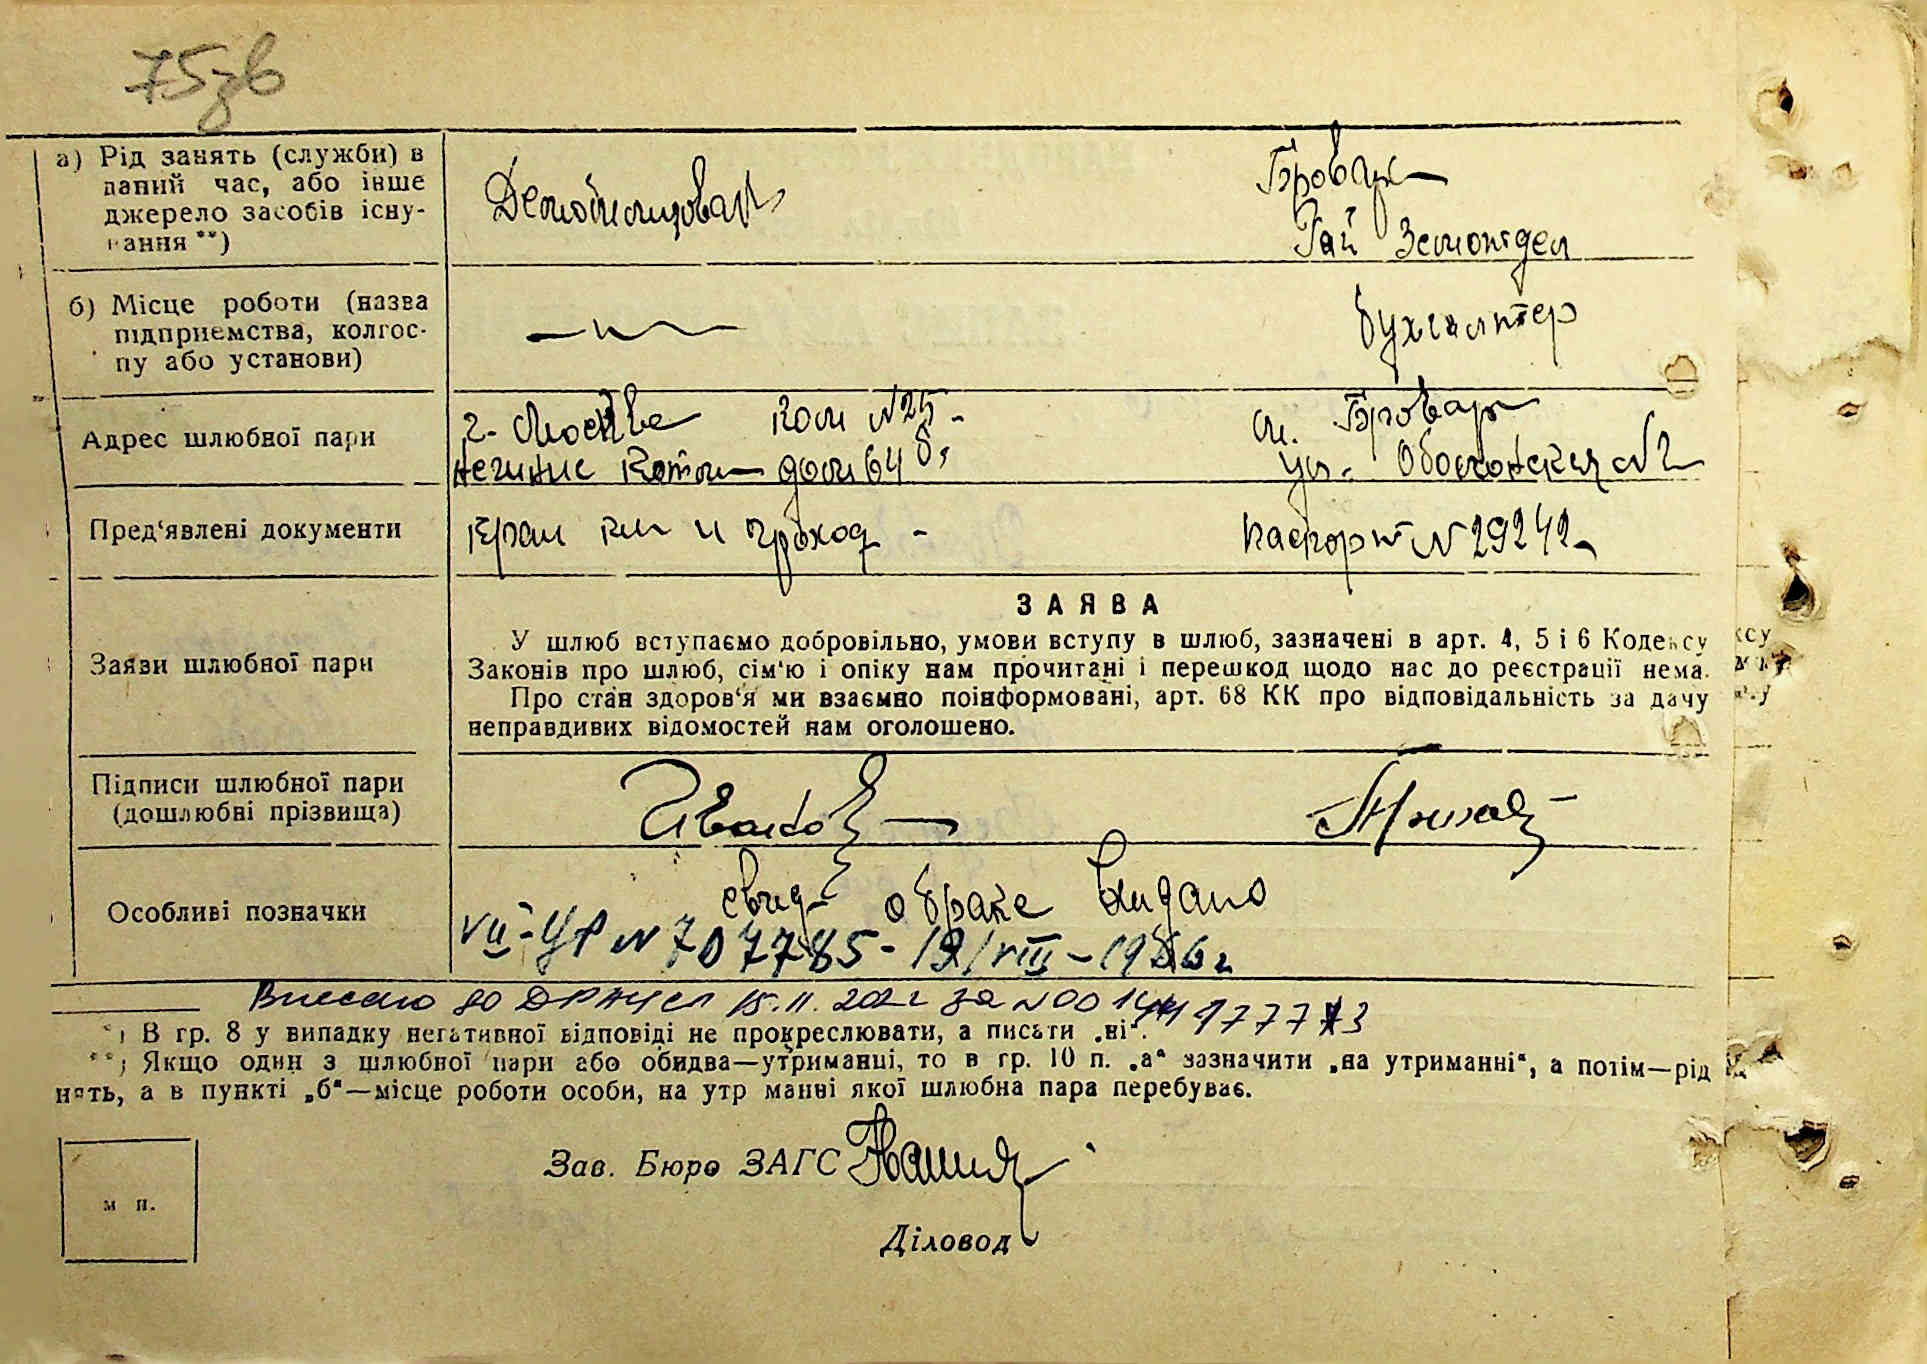 75зв
а) Рід занять (служби) в
даний час, або інше
джерело засобів існу-
вання **)
Демобилизован
Бровары
Рай Земотдел
б) Місце роботи (назва
підприємства, колгос-
пу або установи)
— " —
бухгалтер
Адрес шлюбної пари
г. Москва ком №25
дом 64 б,
м. Бровары
ул. Оболонская №2
Пред'явлені документи
и проход -
паспорт №29242
Заяви шлюбної пари
ЗАЯВА
У шлюб вступаємо добровільно, умови вступу в шлюб, зазначені в арт. 4, 5 і 6 Кодексу
Законів про шлюб, сім'ю і опіку нам прочитані і перешкод щодо нас до реєстрації нема.
Про стан здоров'я ми взаємно поінформовані, арт. 68 КК про відповідальність за дачу
неправдивих відомостей нам оголошено.
Підписи шлюбної пари
(дошлюбні прізвища)
Иванов
Особливі позначки
свид о браке выдано
VII-УР №707785-
Внесено до ДРАЦСГ 15.11.202 за №00
*) В гр. 8 у випадку негативної відповіді не прокреслювати, а писати „ні“.
**) Якщо один з шлюбної пари або обидва—утриманці, то в гр. 10 п. „а“ зазначити „на утриманні“, а потім—рід
нять, а в пункті „б“—місце роботи особи, на утр манні якої шлюбна пара перебуває.
Зав. Бюро ЗАГС
м п.
Діловод